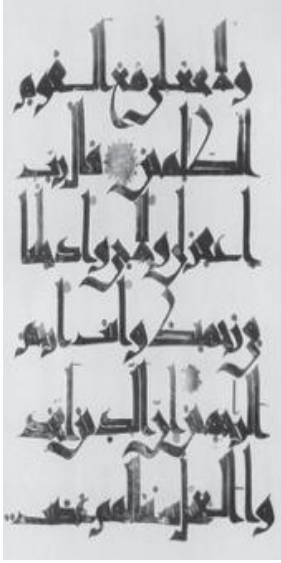 ولا تجعلنى مع القوم
الظلمين قال رب
اغفر لى ولاخى وادخلنا
فى رحمتك وانت ارحم
الرحمين ان الذين اتخذ
وا العجل سينالهم غضب